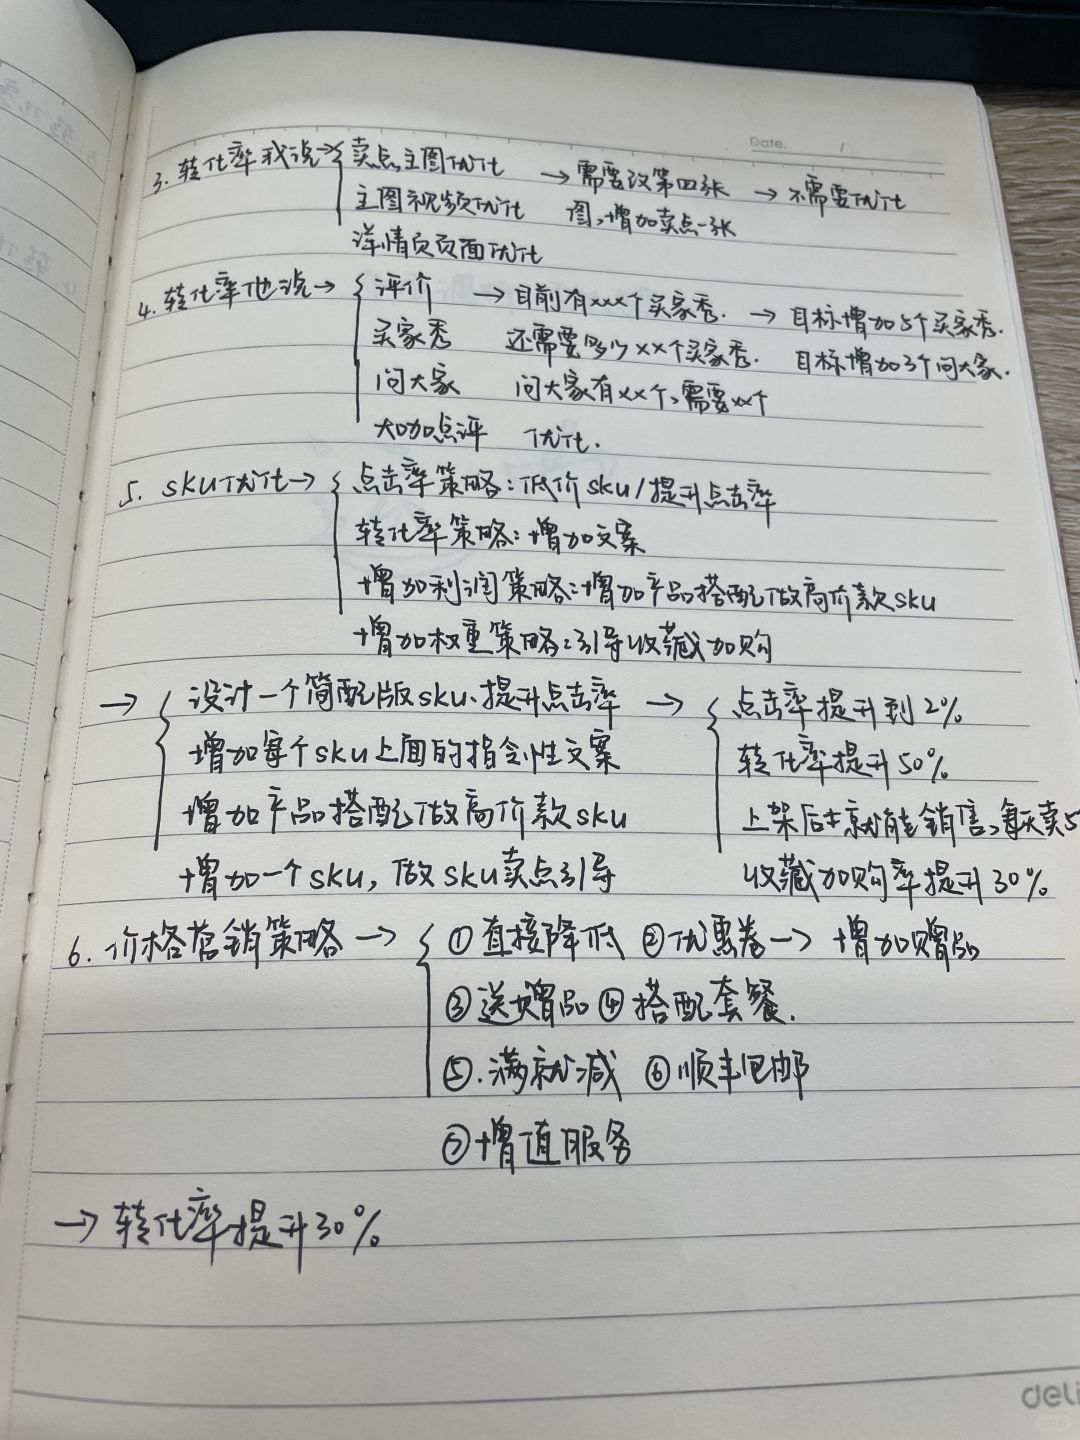 Date. /
3. 转化率我说→ 卖点,主图优化 →需要改第四张 →不需要优化
主图视频优化 图,增加卖点一张
详情页页面优化
4. 转化率他说→ 评价 →目前有xxx个买家秀. →目标增加5个买家秀.
买家秀 还需要多少xx个买家秀. 目标增加3个问大家.
问大家 问大家有xx个,需要xx个
大咖点评 优化.
5. sku优化→ 点击率策略:低价sku/提升点击率
转化率策略:增加文案
增加利润策略:增加产品搭配做高价款sku
增加权重策略:引导收藏加购
→ 设计一个简配版sku、提升点击率 → 点击率提升到2%
增加每个sku上面的指令性文案 转化率提升50%
增加产品搭配做高价款sku 上架后就能销售,每天卖5
增加一个sku,做sku卖点引导 收藏加购率提升30%
6. 价格营销策略 → ①直接降低 ②优惠卷→ 增加赠品
③送赠品 ④搭配套餐.
⑤.满就减 ⑥顺丰包邮
⑦增值服务
→转化率提升30%
deli